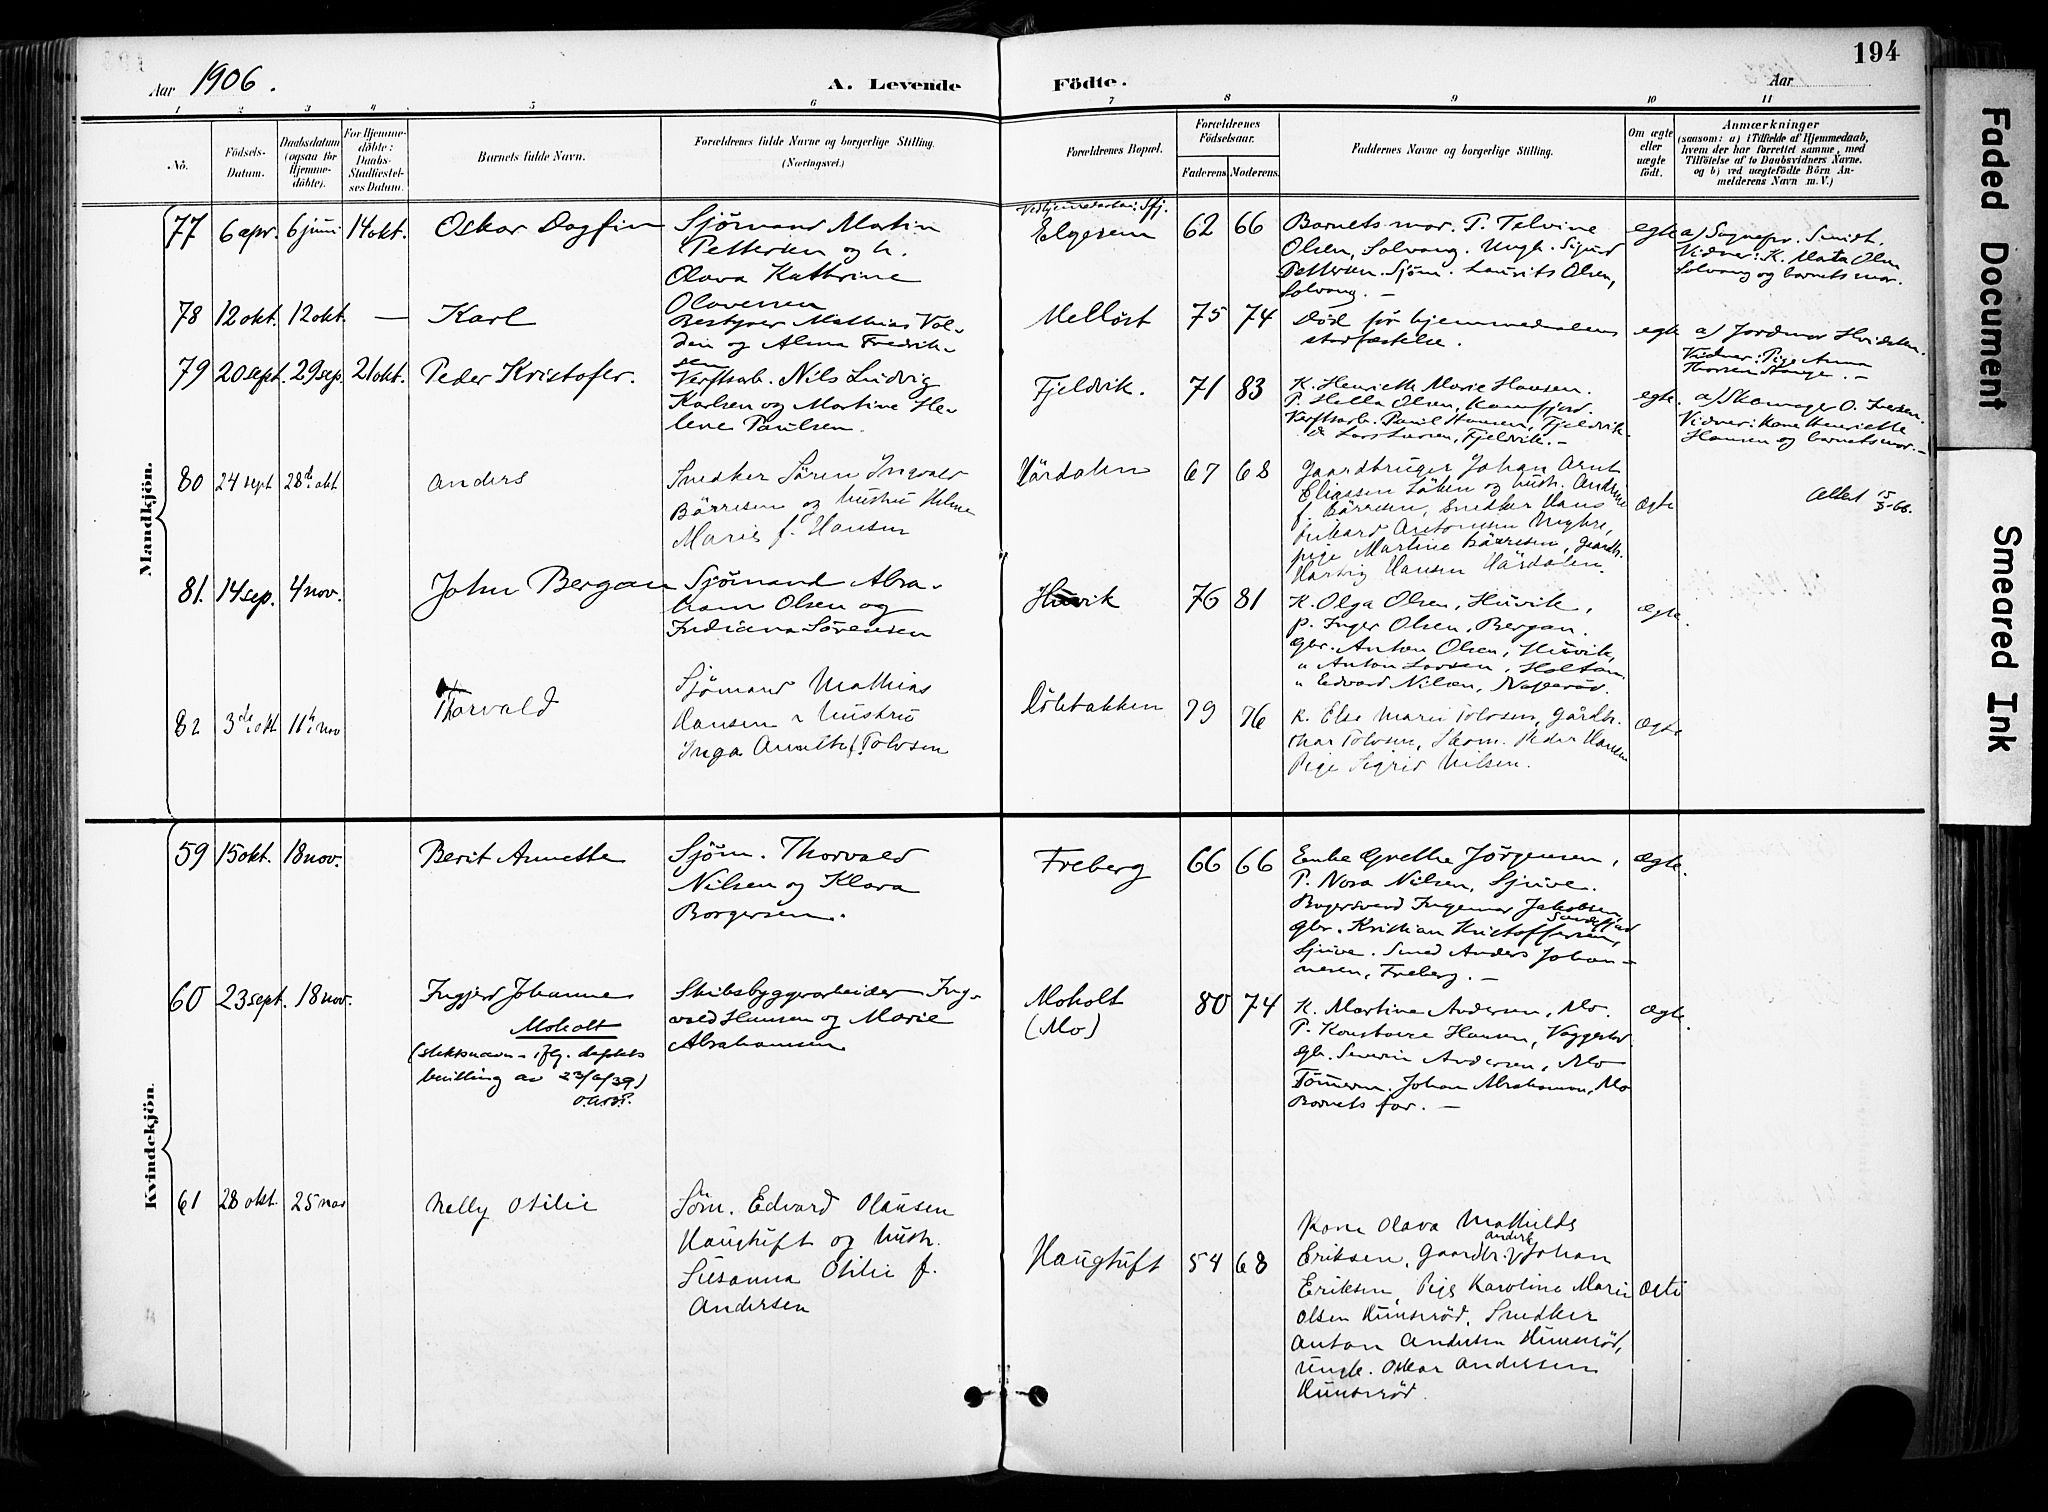 194
Aar 1906. A. Levende Födte. Aar
1 2 3 4 5 6 7 8 9 10 11
No.
Födsels-
Datum.
Daabsdatum
(ogsaa for
Hjemme-
döbte).
For Hjemme-
döbte:
Daabs-
Stadfæstel-
ses Datum.
Barnets fulde Navn.
Forældrenes fulde Navne og borgerlige Stilling.
(Næringsvei.)
Forældrenes Bopæl.
Forældrenes
Födselsaar.
Faderens. Moderens.
Faddernes Navne og borgerlige Stilling.
Om ægte
eller
uægte
födt.
Anmærkninger
(saasom: a) i Tilfælde af Hjemmedaab,
hvem der har forrettet samme, med
Tilföielse af to Daabsvidners Navne.
og b) ved uægtefödte Börn An-
melderens Navn m. V.)
Mandkjön.
77 6 apr. 6 juni 14 okt. Oskar Dagfin
Sjømand Martin
Pettersen og h.
Olava Kathrine
Olavesen
Elgesem 62 66
Barnets mor. P. Talvine
Olsen, Solvang. Ungk. Sigurd
Pettersen. Sjøm. Laurits Olsen,
Solvang. —
egte
a) Sognepr. Smidt.
Vidner: K. Mata Olsen
Solvang og barnets mor.
78 12 okt. 12 okt. — Karl
Bestyrer Mathias Vol-
den og Alma Fredrik-
sen
Melløst 75 74
Død før hjemmedaabens
stadfæstelse.
egte
a) Jordmor Hvidsten.
Vidner: Pige Anna
Thorsen Stange. —
79 20 sept. 29 sep. 21 okt. Peder Kristofer.
Verftsarb. Nils Ludvig
Karlsen og Martine He-
lene Paulsen.
Fjeldvik. 71 83
K. Henriette Marie Hansen.
P. Hella Olsen, Kamfjord.
Verftsarb. Paul Hansen, Fjeldvik.
do Lars Larsen, Fjeldvik. —
egte.
a) Skomager O. Iversen.
Vidner: Kone Henriette
Hansen og barnets mor. —
80 24 sept 28de okt Anders
Snedker Sören Ingvald
Börresen og hustru Helene
Marie f. Hansen
Vårdalen 67 68
Gaardbruger Johan Arnt
Eliassen Löken og hustr. Andrine
f. Börresen, snedker Hans
Rikard Antonsen Unghre,
pige Martine Börresen, Gaardb.
Hartvig Hansen Vårdalen
ægte
Attest 15/3-66.
81. 14 sep. 4 nov. John Bergan
Sjömand Abra-
ham Olsen og
Indiana Sørensen
Huvik 76 81
K. Olga Olsen, Huvik,
P. Inger Olsen, Bergan.
gbr. Anton Olsen, Huvik,
" Anton Larsen, Holtan
" Edvard Nilsen, Napperød.
ægte.
82 3de okt 11te nov Thorvald
Sjömand Mathias
Hansen & hustru
Inga Anette f. Tolvsen
Dölebakken 79 76
K. Else Marie Tolvsen, Gårdb.
Ivar Tolvsen, Skom. Peder Hansen
Pige Sigrid Nilsen.
ægte
Kvindekjön.
59 15 okt. 18 nov. Berit Annette
Sjøm. Thorvald
Nilsen og Klara
Borgersen.
Freberg 66 66
Enke Grethe Jørgensen,
P. Nora Nilsen, Sjuve.
Bagersvend Ingemar Jakobsen,
Sandefjord
gbr. Kristian Kristoffersen,
Sjuve. Smed Anders Johan-
nesen, Freberg. —
ægte.
60 23 sept. 18 nov. Ingjerd Johanne
Moholt
(slektsnavn — iflg. deptets
bevilling av 23/6/39)
Skibsbyggerarbeider Ing-
vald Hansen og Marie
Abrahamsen
Moholt
(Mo)
80 74
K. Martine Andersen, Mo.
P. Konstance Hansen, Vaggestad
gbr. Severin Andersen, Mo
Tömmerm. Johan Abrahamsen, Mo
Barnets far. —
ægte.
61 28 okt. 25 nov Nelly Otilie
Söm. Edvard Olausen
Haugtuft og hustr.
Susanna Otilie f.
Andersen
Haugtuft 54 68
Kone Olava Mathilde
Eriksen, Gaardbr. Johan
Eriksen, Pige Karoline Marie
Olsen Hunsröd, Snedker
Anton Andersen Hunsröd,
Ungk. Oskar Andersen
Hunsröd.
ægte
Faded Document
Smeared Ink